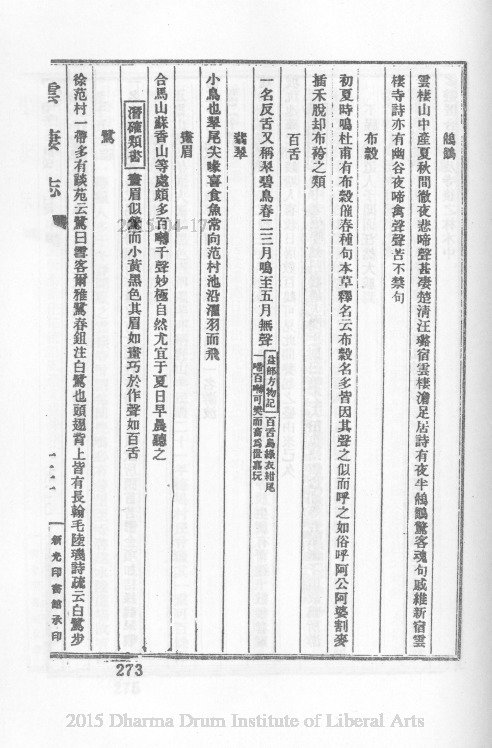 鵂鶹
雲棲山中產夏秋間徹夜悲啼聲甚凄楚清汪璐宿雲棲濳足居詩有夜半鵂鶹驚客魂句戚維新宿雲
棲寺詩亦有幽谷夜啼禽聲聲苦不禁句
布穀
初夏時鳴杜甫有布穀催春種句本草釋名云布穀名多皆因其聲之似而呼之如俗呼阿公阿婆割麥
插禾脫却布袴之類
百舌
一名反舌又稱翠碧鳥春二三月鳴至五月無聲 益部方物記 百舌鳥綠衣紺尾
一啼百囀可樊而畜爲世嘉玩
翡翠
小鳥也翠尾尖喙喜食魚常向范村池沿濯羽而飛
畫眉
合馬山蘇香山等處頗多百囀千聲妙極自然尤宜于夏日早晨聽之
潛確類書 畫眉似鶯而小黃黑色其眉如畫巧於作聲如百舌
鷺
徐范村一帶多有談苑云鷺曰雪客爾雅鷺舂鉏注白鷺也頭翅背上皆有長翰毛陸璣詩疏云白鷺步
雲棲志
二二
新光印書館承印
2015-04-17
273
2015 Dharma Drum Institute of Liberal Arts